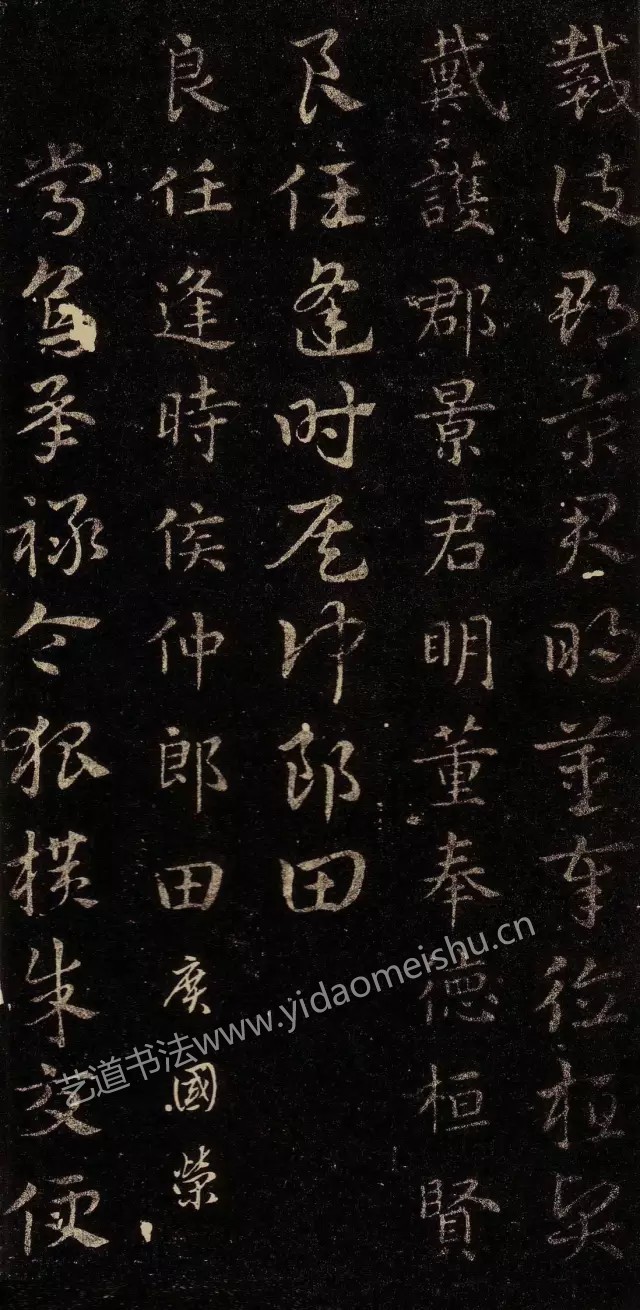 戴護郡景君明董奉德桓賢
戴護郡景君明董奉德桓賢
良任逢时侯仲郎田
良任逢時侯仲郎田廣國榮
常烏承祿令狐橫朱交便
艺道书法www.yidaomeishu.cn